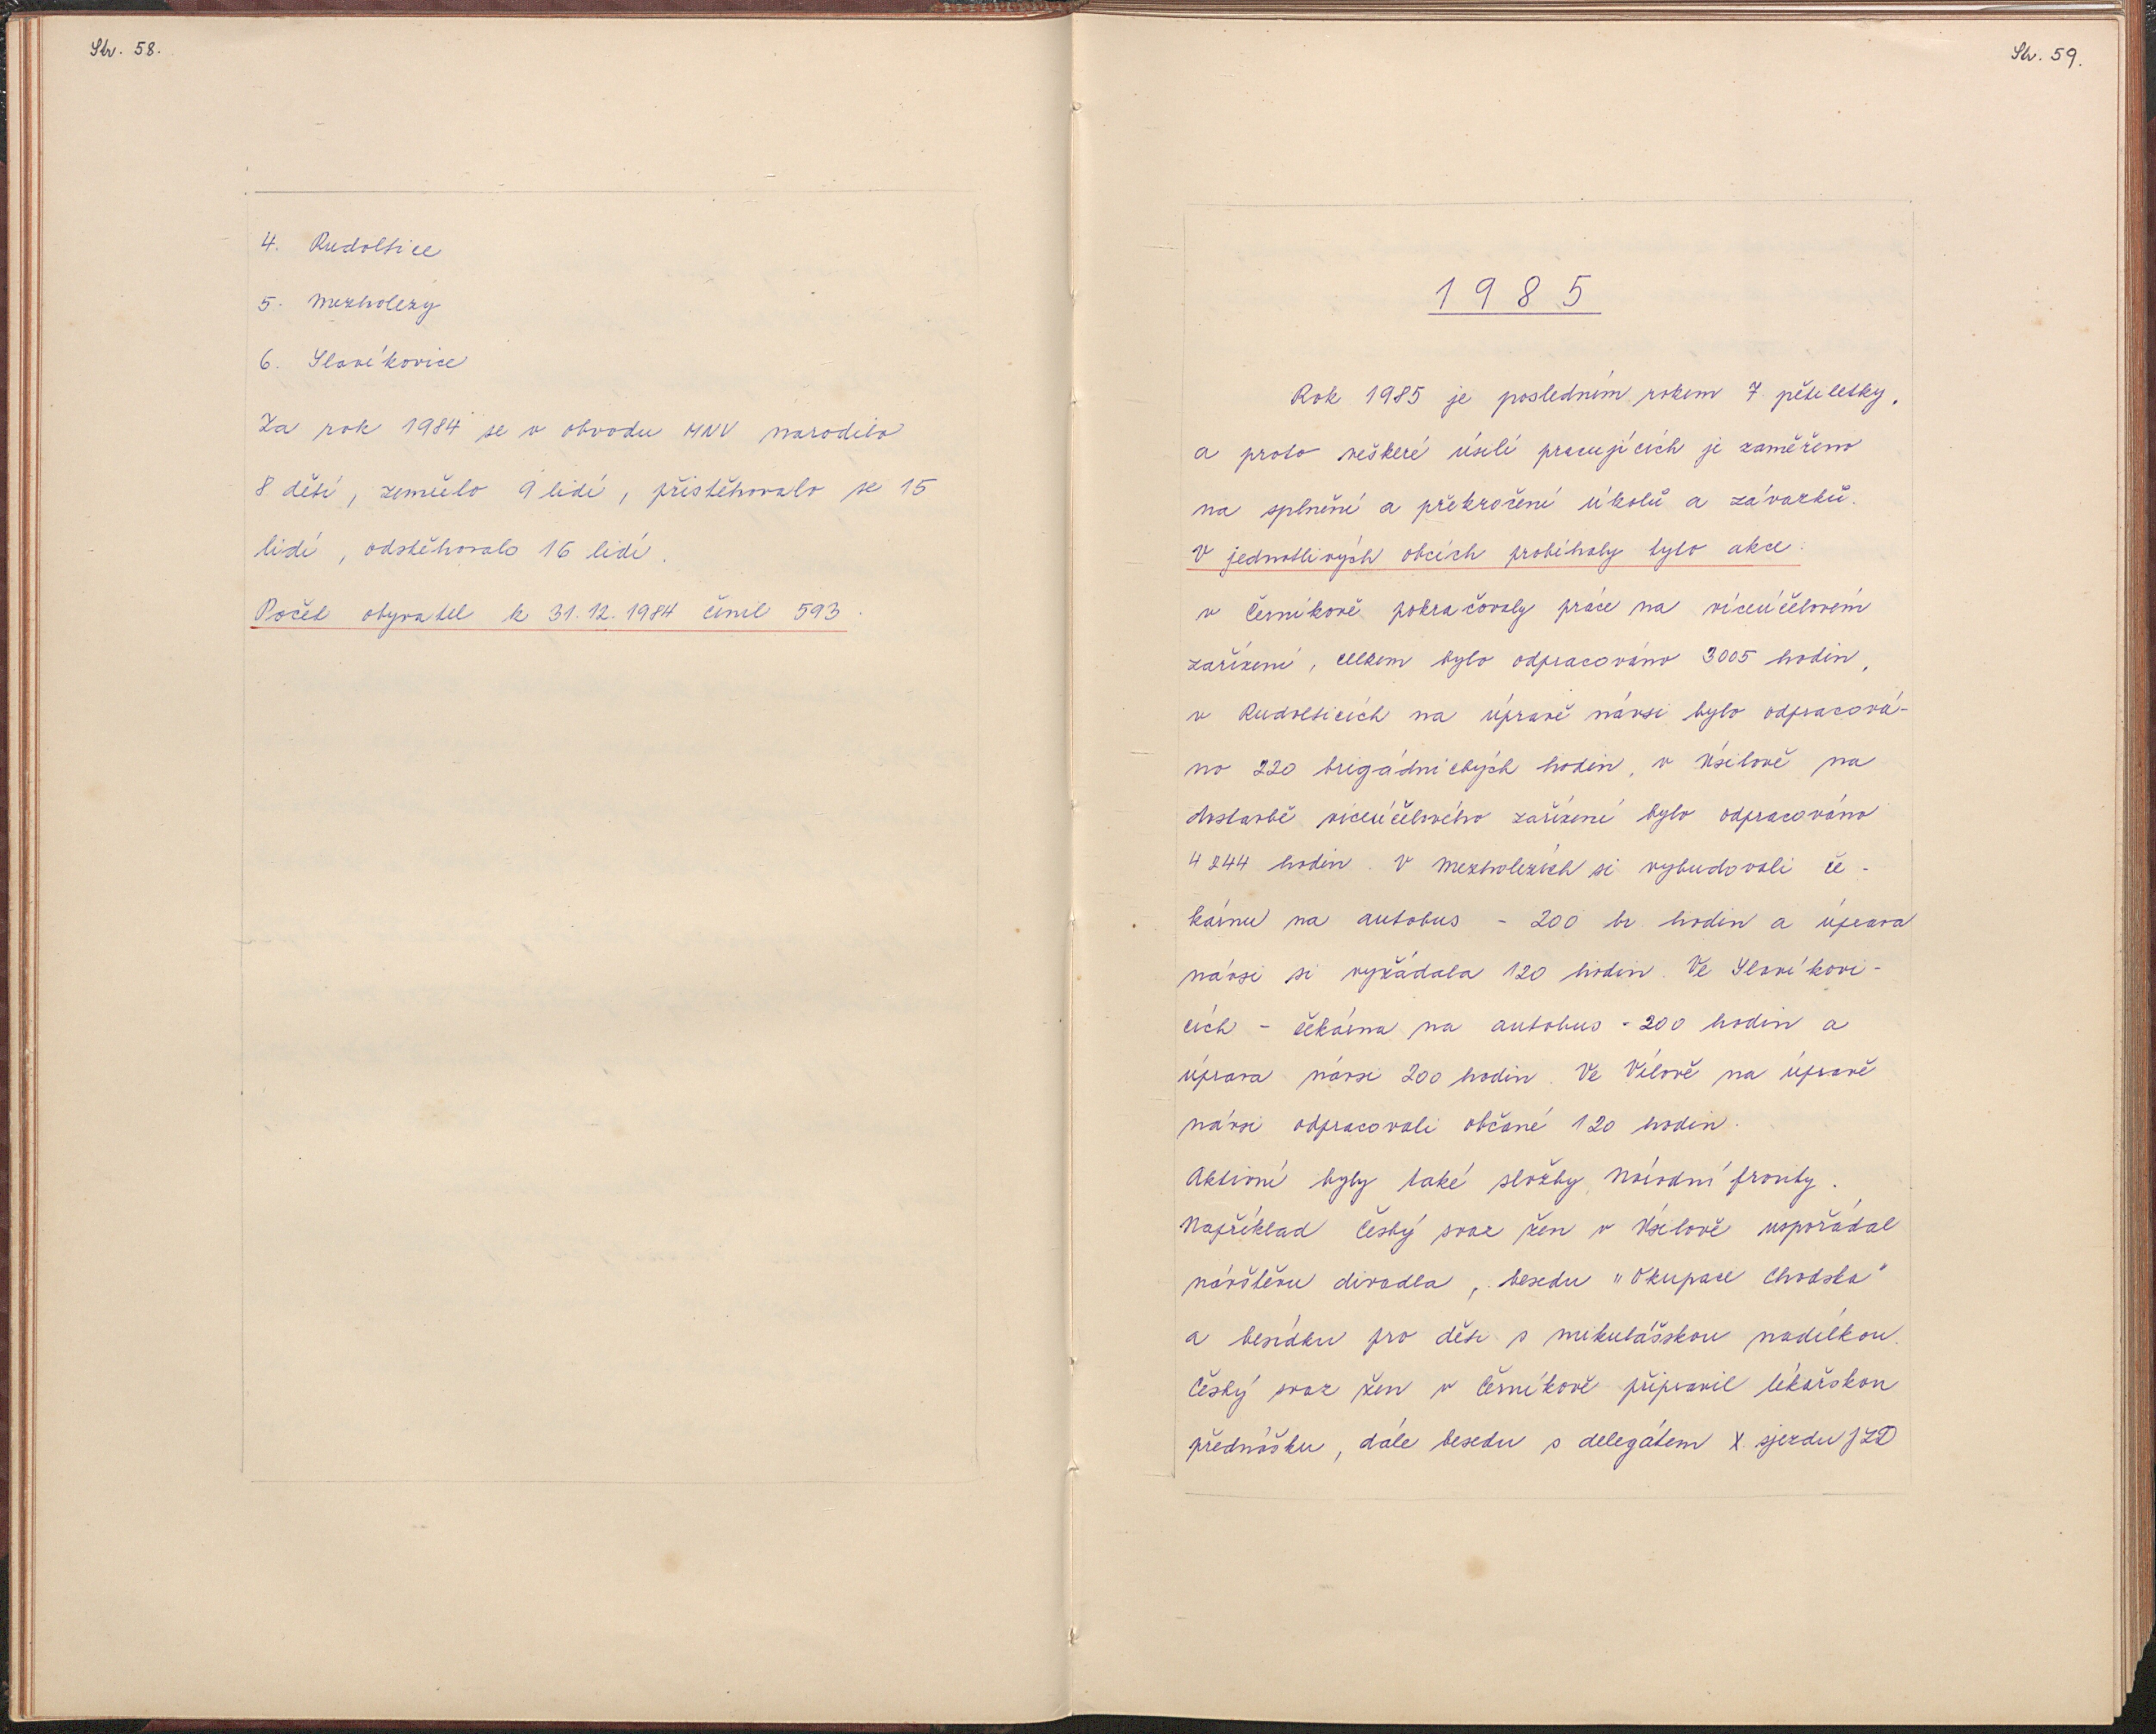 Str. 58.
4. Rudoltice
5. Mezholezy
6. Slavíkovice
Za rok 1984 se v obvodu MNV narodilo
8 dětí, zemřelo 9 lidí, přistěhovalo se 15
lidí, odstěhovalo 16 lidí.
Počet obyvatel k 31. 12. 1984 činil 593.
Str. 59.
1985
Rok 1985 je posledním rokem 7. pětiletky,
a proto veškeré úsilí pracujících je zaměřeno
na splnění a překročení úkolů a závazků.
V jednotlivých obcích probíhaly tyto akce:
v Černíkově pokračovaly práce na víceúčelovém
zařízení, celkem bylo odpracováno 3005 hodin,
v Rudolticích na úpravě návsi bylo odpracová-
no 220 brigádnických hodin, v Úsilově na
dostavbě víceúčelového zařízení bylo odpracováno
4 244 hodin. V Mezholezích si vybudovali če-
kárnu na autobus - 200 br. hodin a úprava
návsi si vyžádala 120 hodin. Ve Slavíkovi-
cích - čekárna na autobus - 200 hodin a
úprava návsi 200 hodin. Ve Vílově na úpravě
návsi odpracovali občané 120 hodin.
Aktivní byly také složky Národní fronty.
Například Český svaz žen v Úsilově uspořádal
návštěvu divadla, besedu "Okupace Chodska"
a besídku pro děti s mikulášskou nadílkou.
Český svaz žen v Černíkově připravil lékařskou
přednášku, dále besedu s delegátem X. sjezdu JZD